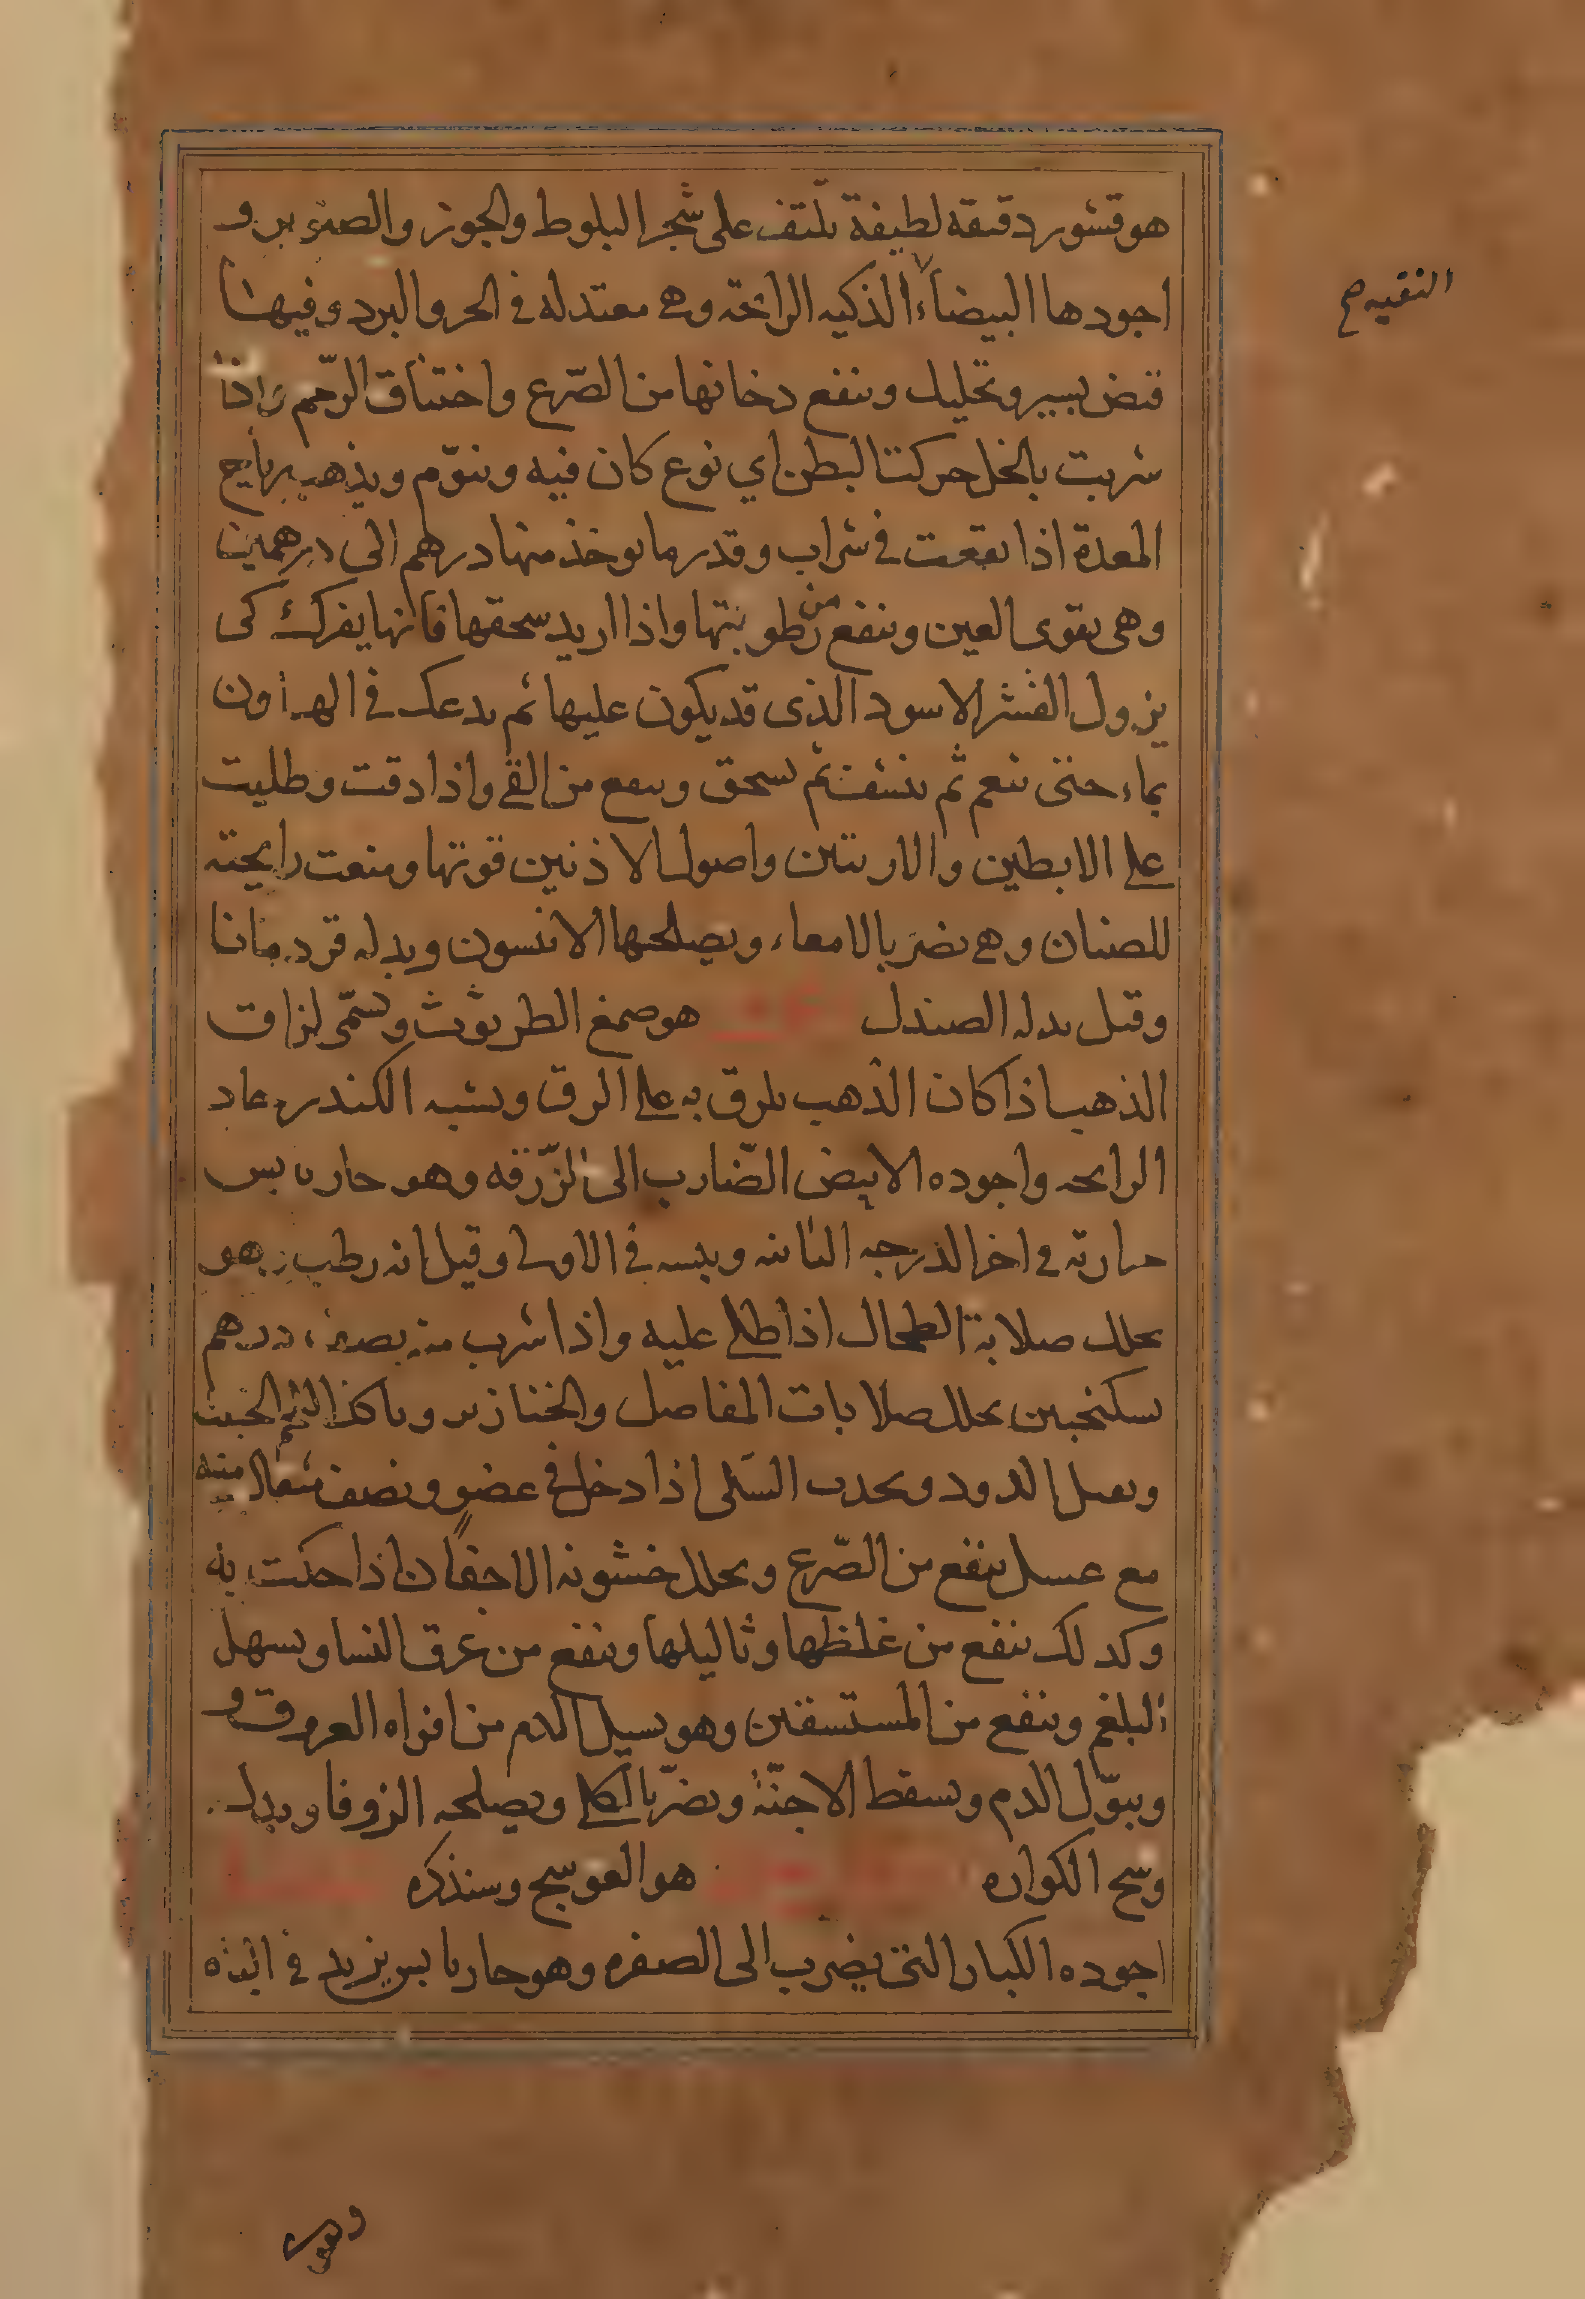 هو قشور دقيقه لطيفة تلتف على شجر البلوط والجوز والصنوبر و
اجودها البيضاء الذكيه الرائحة وهي معتدله في الحر والبرد وفيها
النقيه صح
قبض يسير وتحليل وينفع دخانها من الصّرع واختناق الرّحم واذا
شربت بالخل حركت البطن اي نوع كان فيه وينوّم ويذهب برياح
المعدة اذا نقعت في شراب وقدر ما يوخذ منها درهم الى درهمين
وهى يقوى العين وينفع من رطوبتها واذا اريد سحقها فانها يفرك كى
يزول القشر الاسود الذى قد يكون عليها ثم يدعك في الهاون
بماء حتى ينعم ثم ينشف ثم يسحق وينفع من القي واذا دقت وطليت
على الابطين والاربتين واصول الاذنين قوتها ومنعت رايحته
للصنان وهي يضرّ بالامعاء ويصلحها الانيسون وبدله قردمانا
وقيل بدله الصندل هو صمغ الطرثوث ويسمّى لزاق
الذهب اذا كان الذهب يلزق به على الرق ويشبه الكندر حاد
الرايحه واجوده الابيض الضّارب الى الزّرقه وهو حار يابس
حرارته في اخر الدرجه الثانيه ويبسه في الاولى وقيل انه رطب وهو
يحلل صلابة الطحال اذا طلي عليه واذا شرب منه نصف درهم
بسكنجبين يحلل صلابات المفاصل والخنازير وياكل اللحم الخبيث
ويقتل الدود ويجذب السّلى اذا دخل في عضو ونصف مثقال منه
مع عسل ينفع من الصّرع ويحلل خشونه الاجفان اذا حكت به
وكذلك ينفع من غلظها وثاليلها وينفع من عرق النسا ويسهل
البلغم وينفع من المستسقين وهو يسيل الدم من افواه العروق و
ويبوّل الدم ويسقط الاجنّة ويضرّ بالكلى ويصلحه الزوفا وبدله
وسخ الكواره هو العوسج وسنذكره
اجوده الكبار التى يضرب الى الصفره وهو حار يابس يزيد في